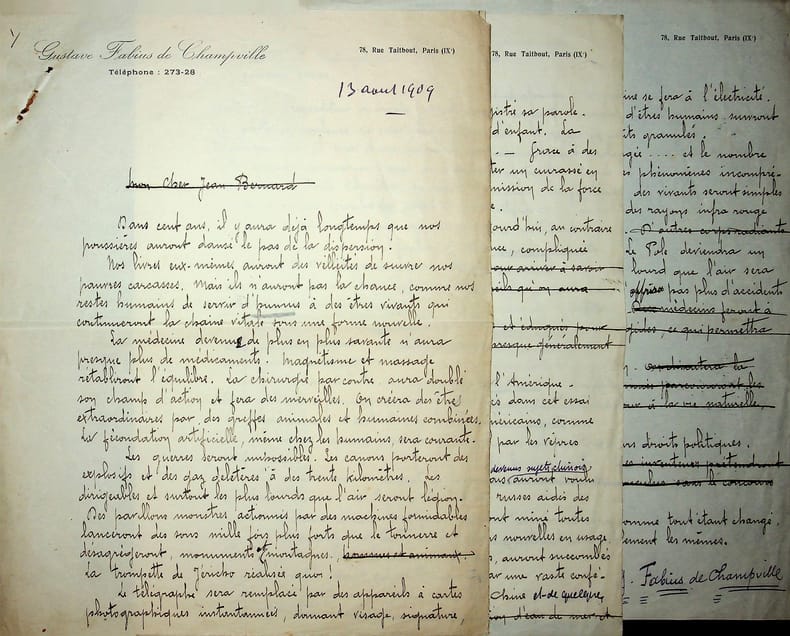 Gustave Fabius de Champville
Téléphone : 273-28
78, Rue Taitbout, Paris (IXe)
13 aout 1909
Mon Cher Jean Bernard
Dans cent ans, il y aura déjà longtemps que nos
poussières auront dansé le pas de la dispersion.
Nos livres eux-mêmes auront des velléités de suivre nos
pauvres carcasses, mais ils n'auront pas la chance, comme nos
restes humains de servir d'humus à des êtres vivants qui
continueront la chaine vitale sous une forme nouvelle.
La médecine devenue de plus en plus savante n'aura
presque plus de médicaments. Magnétisme et massage
rétabliront l'équilibre. La chirurgie par contre, aura doublé
son champ d'action et fera des merveilles. On créera des être
extraordinaires par des greffes animales et humaines combinées.
La fécondation artificielle, même chez les humains, sera courante.
Les guerres seront impossibles. Les canons porteront des
explosifs et des gaz délétères à des trente kilomètres. Les
dirigeables et surtout les plus lourds que l'air seront légion.
Des pavillons monstres, actionnés par des machines formidables
lanceront des sons mille fois plus forts que le tonnerre et
désagrégeront, monuments montagnes,
La trompette de Jéricho réalisée quoi!
Le télégraphe sera remplacé par des appareils à cartes
photographiques instantanées, donnant visage, signature,
78, Rue Taitbout, Paris (IXe)
istré sa parole.
d'enfant. La
Grace à des
ter un cuirassé en
mission de la force
ourd'hui, au contraire
nce, compliquée
our arriver à savoir
eils qu'on aura
et éduqués pour
presque généralement
l'Amérique.
és dans cet essai
éricains, comme
par les
devenus sujets chinois
auront voulu
russes aidés des
ont miné toutes
nouvelles en usage
, auront succombés
ar une vaste confé-
Chine et de quelques
d'eau de mer et
78, Rue Taitbout, Paris (IXe)
ine se fera à l'électricité.
d'êtres humains suivront
its granulés.
gée .... et le nombre
phénomènes incompré-
des vivants seront simples
des rayons infra rouge
D'autres
Le Pole deviendra un
lourd que l'air sera
pas plus d'accidents
médecins feront à
, ce qui permettra
la
à la vie naturelle,
droits politiques.
es inventeurs prétendront
sans le concours
omme tout étant changé,
ement les mêmes.
Fabius de Champville